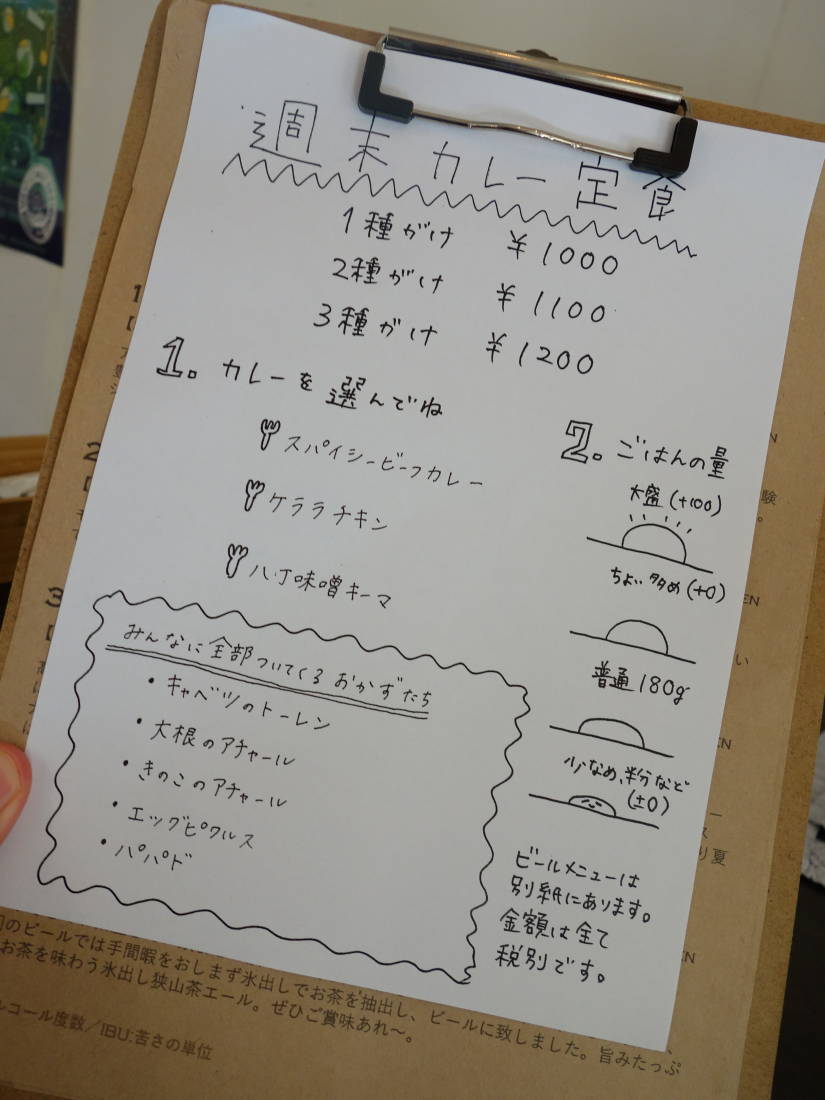 週末カレー定食
1種がけ ¥1000
2種がけ ¥1100
3種がけ ¥1200
1. カレーを選んでね
スパイシービーフカレー
ケララチキン
八丁味噌キーマ
みんなに全部ついてくるおかずたち
・キャベツのトーレン
・大根のアチャール
・きのこのアチャール
・エッグピクルス
・パパド
2. ごはんの量
大盛(+100)
ちょい多め(+0)
普通180g
少なめ、半分など
(±0)
ビールメニューは
別紙にあります。
金額は全て
税別です。
のビールでは手間暇をおしまず氷出しでお茶を抽出し、ビールに致しました。旨みたっぷ
お茶を味わう氷出し狭山茶エール。ぜひご賞味あれ〜。
ルコール度数/IBU:苦さの単位